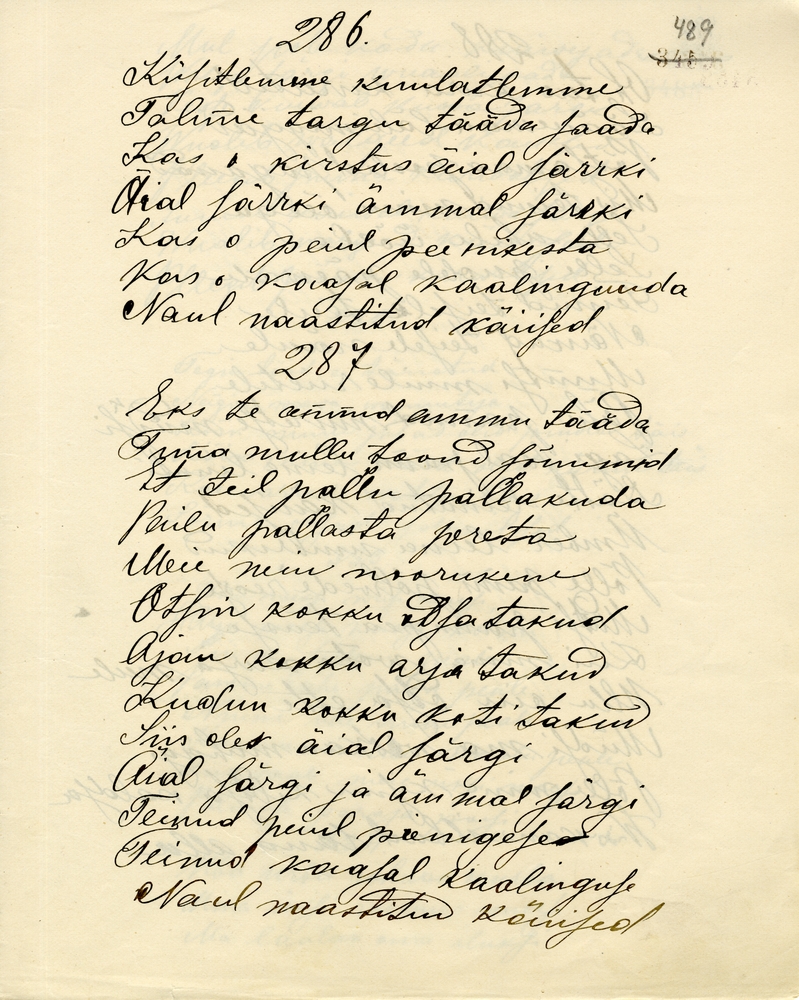 286.
489
345.
Küsitlemme kuulatlemme
Tahme targu tääda saada
Kas o kirstus äial särrki
Äial särrki ämmal särrki
Kas o peiul peenikesta
Kas o kaasal kaalinguuda
Naul naastitud käised
287
Eks te annud ammu tääda
Tuna mullu toond sõnumid
Et teil pallu pallakuda
Peilu pallasta preta
Meie nein noorukene
Otsin kokku otsa takud
Ajan kokku arja takud
Kudun kokku koti takud
Siis oles äial särgi
Äial särgi ja ämmal särgi
Teinud peiul pienigesed
Teinud kaasal kaalinguse
Naul naastitud käised